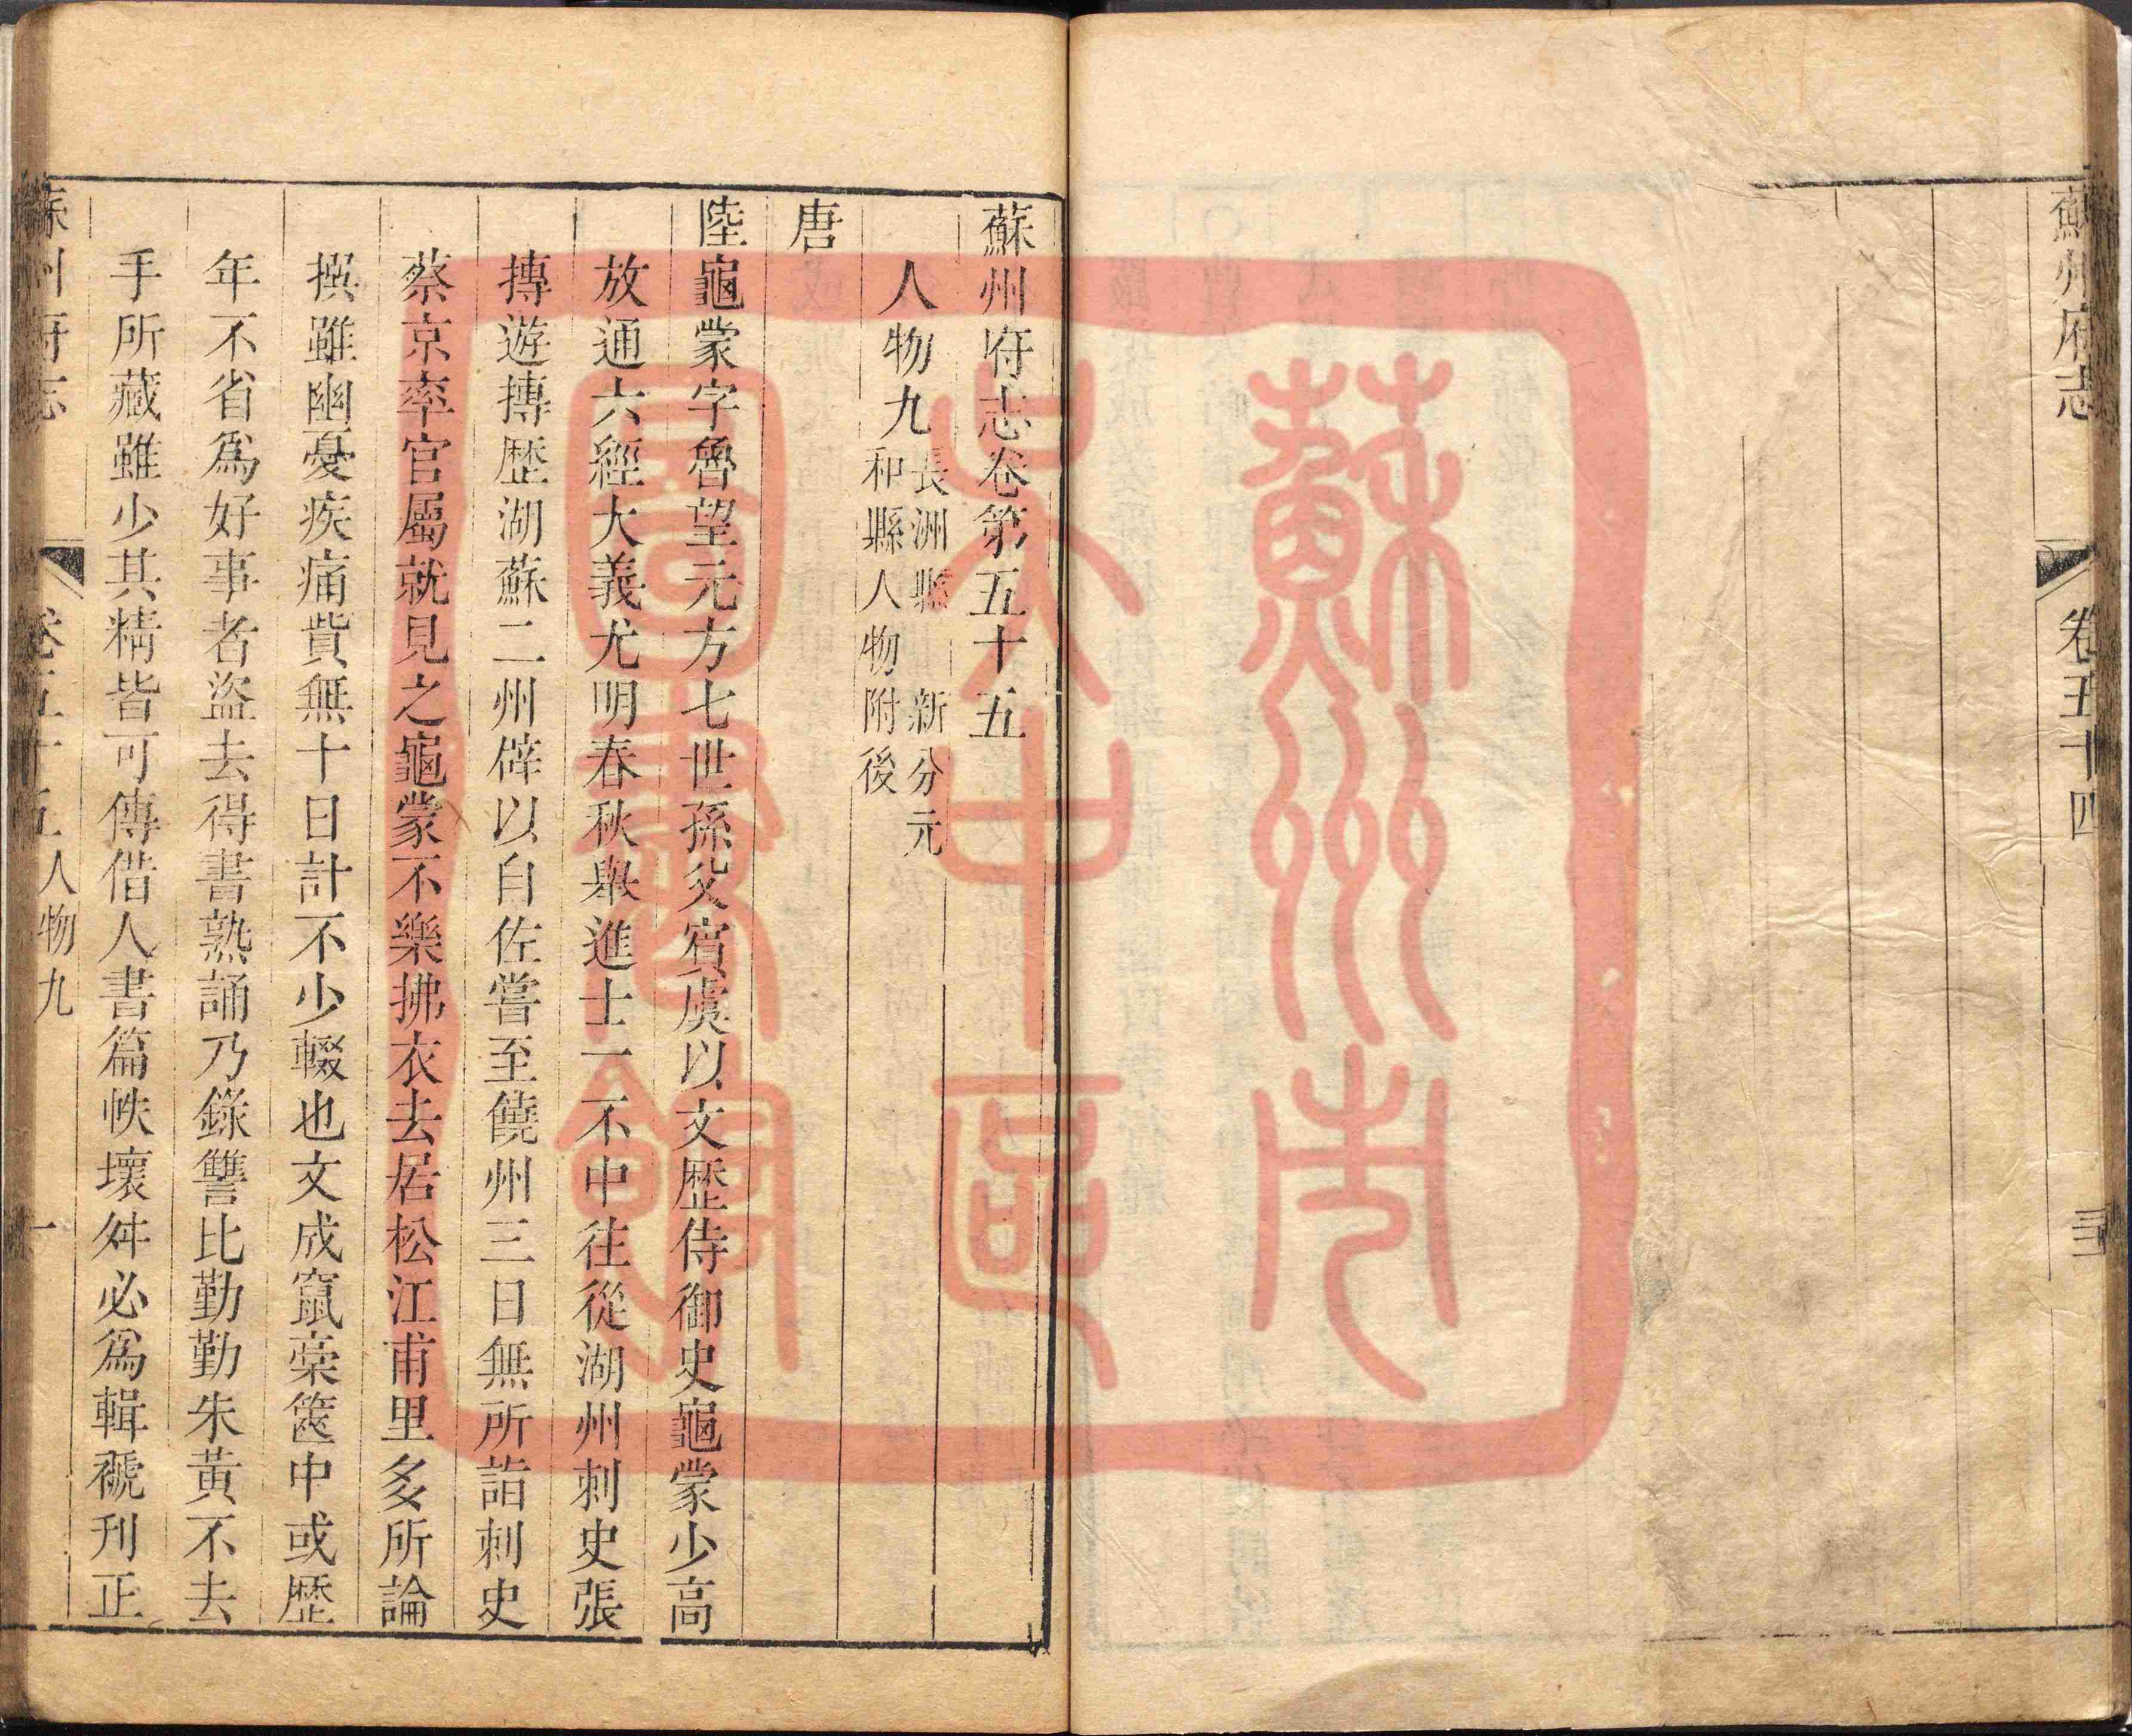 蘇州府志
卷五十四
蘇州府志卷第五十五
人物九
長洲縣 新分元
和縣人物附後
唐
陸龜蒙字魯望元方七世孫父賓虞以文歴侍御史龜蒙少高
放通六經大義尤明春秋舉進士一不中往從湖州刺史張
摶遊摶歴湖蘇二州辟以自佐嘗至饒州三日無所詣刺史
蔡京率官屬就見之龜蒙不樂拂衣去居松江甫里多所論
撰雖幽憂疾痛貲無十日計不少輟也文成竄稾篋中或歴
年不省爲好事者盜去得書熟誦乃錄讐比勤勤朱黃不去
手所藏雖少其精皆可傳借人書篇帙壞舛必爲輯褫刊正
蘇州府志
卷五十五
人物九
一
蘇州市
吳中區
圖書館